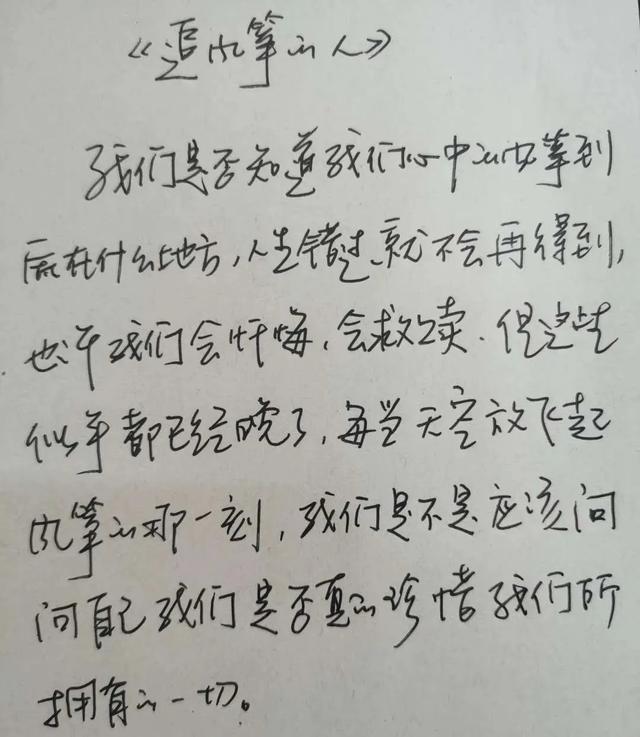 《追风筝的人》
我们是否知道我们心中的风筝到
底在什么地方，人生错过就不会再得到，
也许我们会忏悔，会救赎．但这些
似乎都已经晚了，每当天空放飞起
风筝的那一刻，我们是不是应该问
问自己我们是否真的珍惜我们所
拥有的一切。